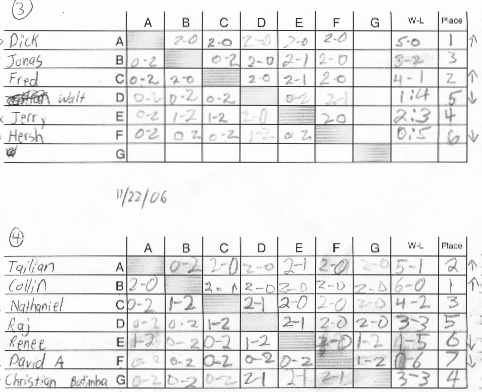 3
A B C D E F G W-L Place
Dick A 2-0 2-0 2-0 2-0 2-0 5-0 1 ↑
Jonas B 0-2 0-2 2-0 2-1 2-0 3-2 3
Fred C 0-2 2-0 2-0 2-1 2-0 4-1 2 ↑
Walt D 0-2 0-2 0-2 0-2 2-1 1:4 5 ↓
Jerry E 0-2 1-2 1-2 2-0 2-0 2:3 4
Hersh F 0-2 0-2 0-2 1-2 0-2 0:5 6 ↓
G
11/22/06
4
A B C D E F G W-L Place
Tailian A 0-2 2-0 2-0 2-1 2-0 2-0 5-1 2 ↑
Collin B 2-0 2-1 2-0 2-0 2-0 2-0 6-0 1 ↑
Nathaniel C 0-2 1-2 2-1 2-0 2-0 2-0 4-2 3
Raj D 0-2 0-2 1-2 2-1 2-0 2-0 3-3 5
Renee E 1-2 0-2 0-2 1-2 2-0 1-2 1-5 6 ↓
David A F 0-2 0-2 0-2 0-2 0-2 1-2 0-6 7 ↓
Christian G 0-2 0-2 0-2 2-1 2-1 2-1 3-3 4